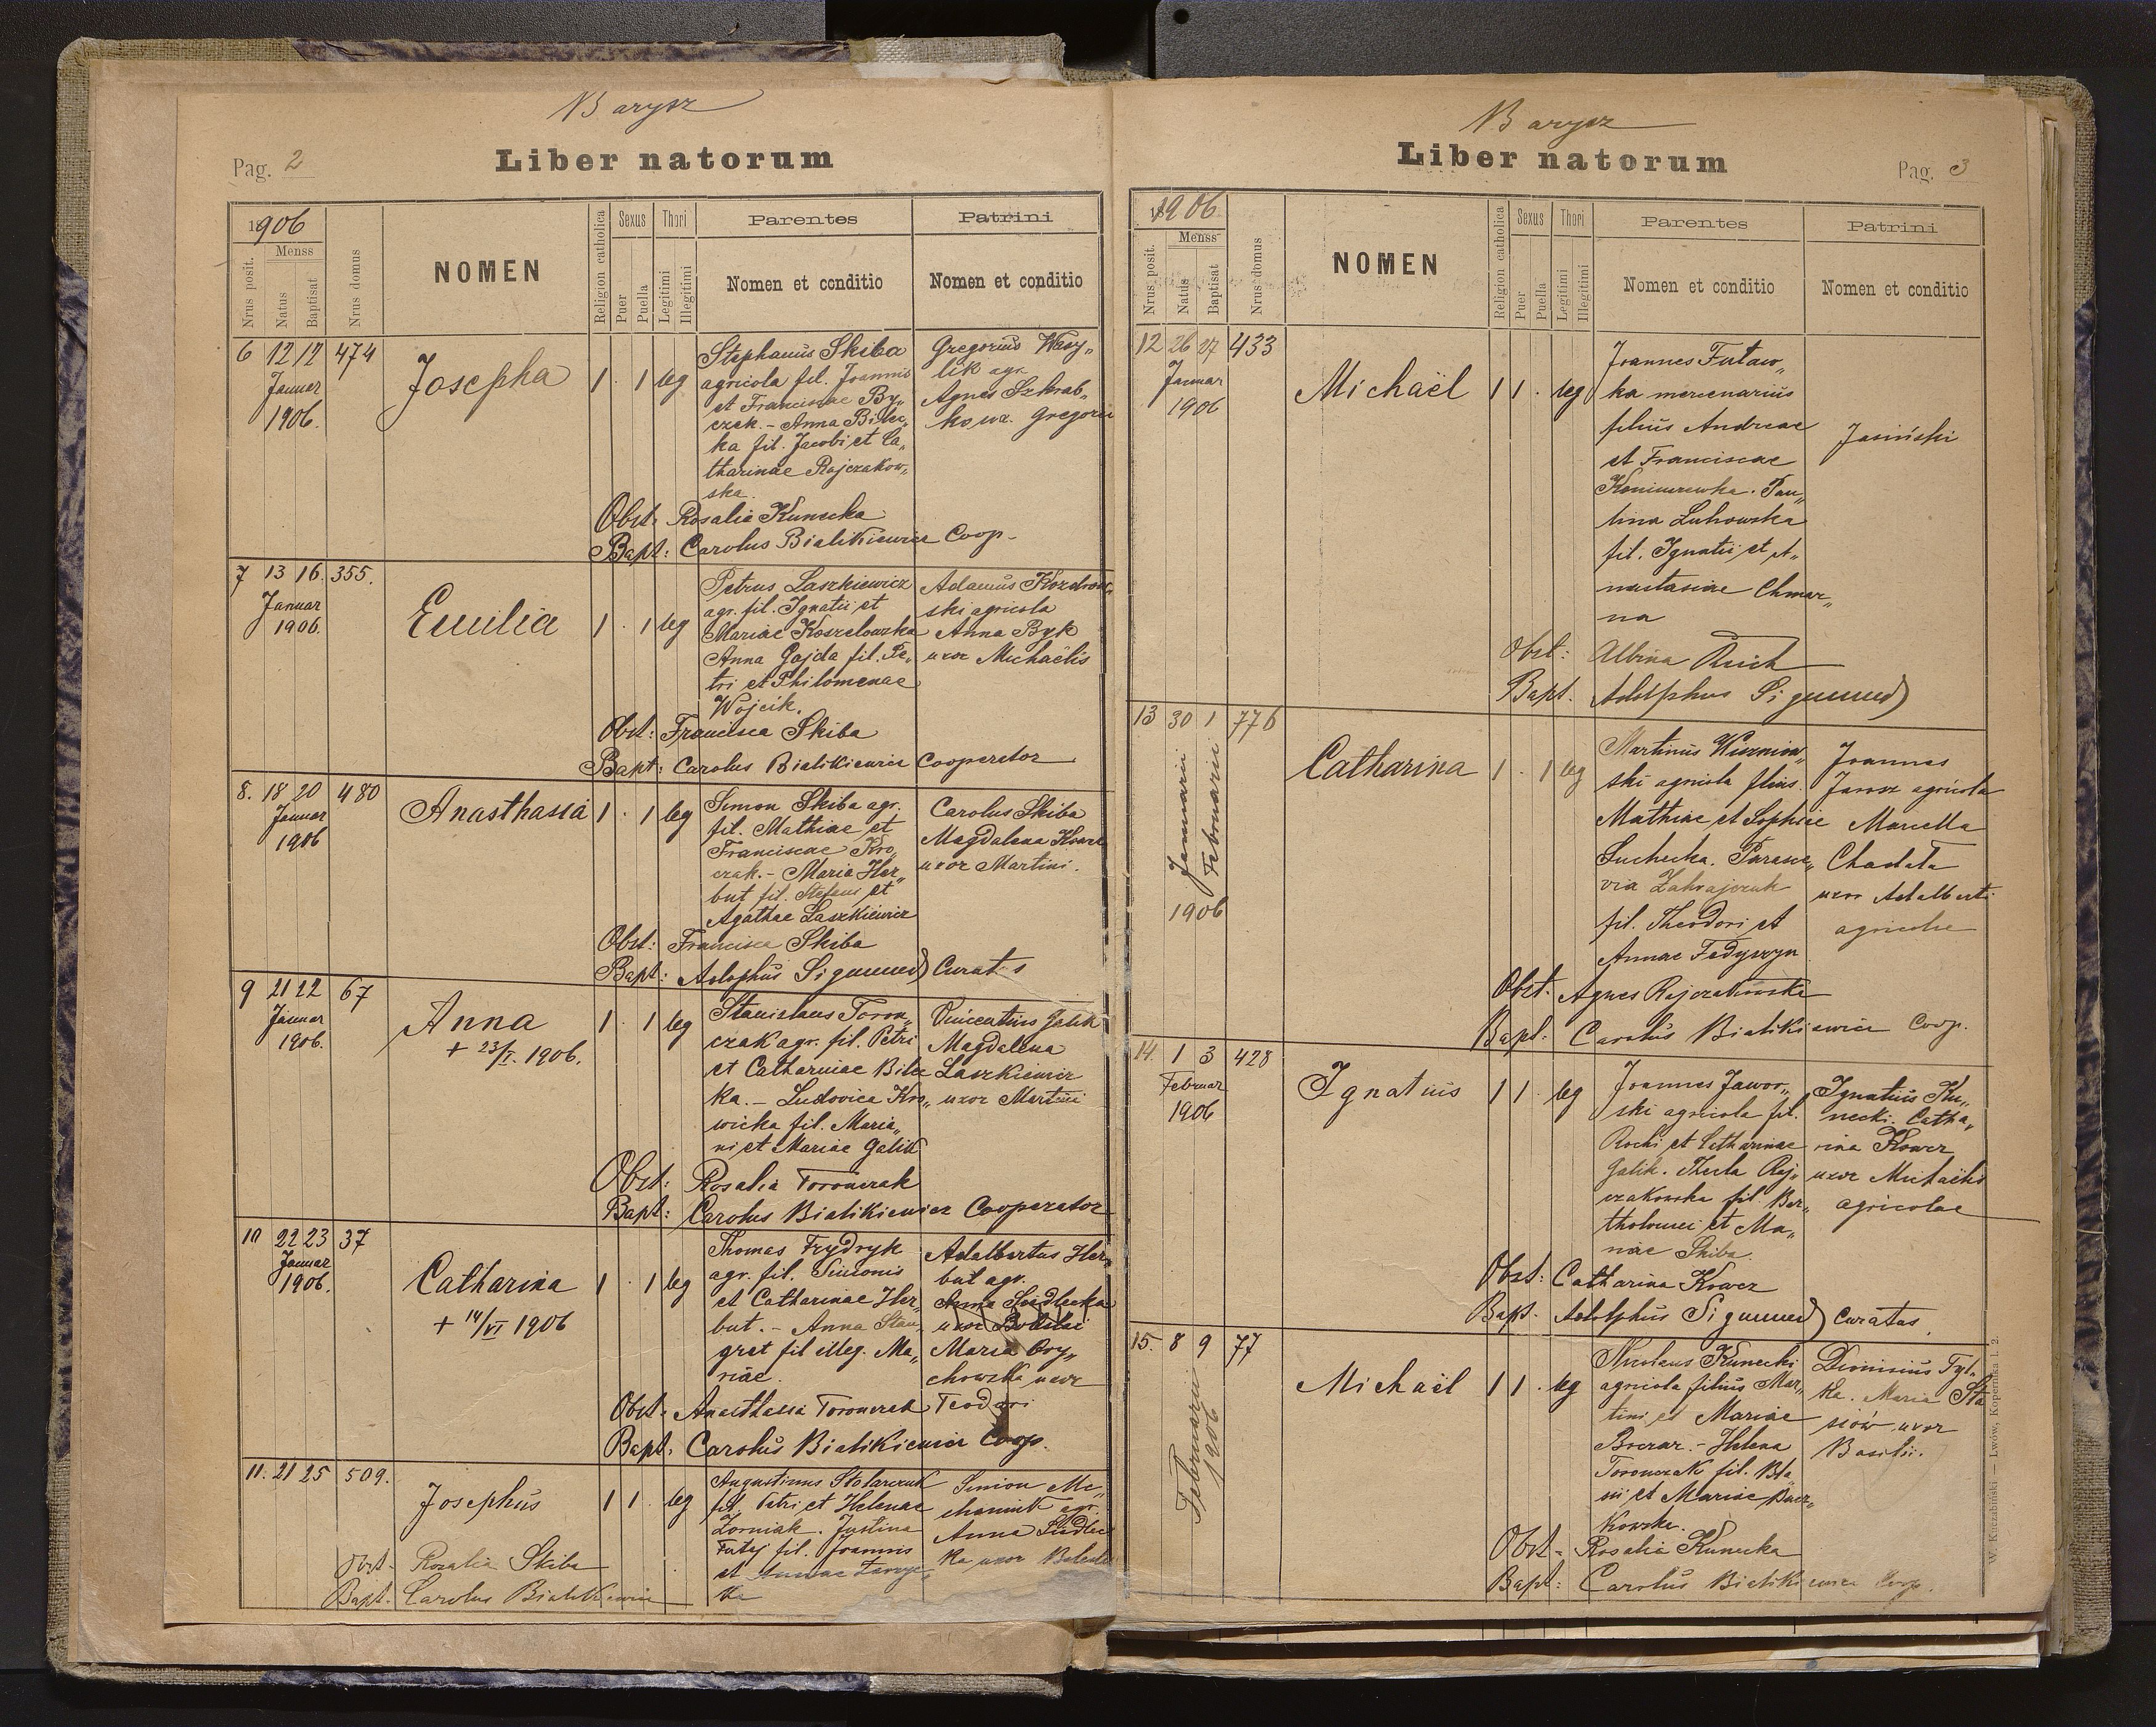 Barysz
Pag. 2
Liber natorum
1906
Menss
Nrus posit.
Natus
Baptisat
Nrus domus
NOMEN
Religion catholica
Sexus
Puer
Puella
Thori
Legitimi
Illegitimi
Parentes
Nomen et conditio
Patrini
Nomen et conditio
6 12 12 474
Januar
1906.
Josepha
1 . 1 leg
Stephanus Skiba
agricola fil. Joannis
et Franciscae By„
czek. – Anna Bilec„
ka fil. Jacobi et Ca„
tharinae Rajczakow„
ska.
Gregorius Wasy„
lik agr.
Agnes Szkrab„
ko ux. Gregorii
Obst: Rosalia Kunecka
Bapt: Carolus Bialikiewicz Coop.
7 13 16. 355.
Januar
1906.
Emilia
1 . 1 leg
Petrus Laszkiewicz
agr. fil. Ignatii et
Mariae Koszelowska
Anna Gajda fil. Pe„
tri et Philomenae
Wojcik.
Adamus Kozdrow„
ski agricola
Anna Byk
uxor Michaëlis
Obst: Francisca Skiba
Bapt: Carolus Bialikiewicz Cooperator
8. 18 20 480
Januar
1906
Anasthasia
1 . 1 leg
Simon Skiba agr.
fil. Mathiae et
Franciscae Kro„
czak. – Maria Her„
but fil. Stefani et
Agathae Laszkiewicz
Carolus Skiba
Magdalena
uxor Martini.
Obst: Francisca Skiba
Bapt: Adolphus Sigmund Curatus
9 21 22 67
Januar
1906.
Anna
+ 23/I. 1906.
1 . 1 leg
Stanislaus Toron„
czak agr. fil. Petri
et Catharinae Bilec
ka. – Ludovica Kro„
wicka fil. Maria„
ni et Mariae Galik
Vincentius Galik
Magdalena
Laszkiewicz
uxor Martini
Obst: Rosalia Toronczak
Bapt: Carolus Bialikiewicz Cooperator
10 22 23 37
Januar
1906.
Catharina
+ 14/VI 1906
1 . 1 leg
Thomas Frydryk
agr. fil. Simonis
et Catharinae Her„
but. – Anna Stan„
gret fil illeg. Ma„
riae.
Adalbertus Her„
but agr.
Anna Siedlecka
uxor Boleslai
Maria Ory„
chowska uxor
Teodori
Obst: Anasthasia Toronczak
Bapt: Carolus Bialikiewicz Coop.
11. 21 25 509.
Josephus
1 1 . leg
Augustinus Stolarczuk
fil. Petri et Helenae
Zorniak. Justina
Futej fil. Joannis
et Annae
ka
Simion Me„
chanik agr.
Anna Siedlec
ka uxor Bolesla
Obst: Rosalia Skiba
Bapt. Carolus Bialikiewicz
Barysz
Liber natorum
Pag. 3
1906
Menss
Nrus posit.
Natus
Baptisat
Nrus domus
NOMEN
Religion catholica
Sexus
Puer
Puella
Thori
Legitimi
Illegitimi
Parentes
Nomen et conditio
Patrini
Nomen et conditio
12 26 27 433
Januar
1906
Michaël
1 1 . leg
Joannes Futaw„
ka mercenarius
filius Andreae
et Franciscae
Pau„
lina Luhowska
fil. Ignatii et A„
nastasiae Chmar„
na
Jasiński
Obst: Albina Reich
Bapt. Adolphus Sigmund
13 30 1 776
Januarii
Februarii
1906
Catharina
1 . 1 leg
Martinus Kuzniow„
ski agricola filius
Mathiae et Sophiae
Suchecka. Parasce„
via Zahrajczuk
fil. Theodori et
Annae Fedyszyn
Joannes
Jarosz agricola
Marcella
Chadala
uxor Adalberti
agricolae
Obst: Agnes Rajczakowska
Bapt: Carolus Bialikiewicz Coop.
14. 1 3 428
Februar
1906
Ignatius
1 1 . leg
Joannes Jawor„
ski agricola fil.
Rochi et Catharinae
Galik. Thecla Raj„
czakowska fil. Bar„
tholomei et Ma„
riae Skiba.
Ignatius Ku„
necki. Catha„
rina Kowcz
uxor Michaëlis
agricolae
Obst: Catharina Kowcz
Bapt. Adolphus Sigmund Curatus
15. 8 9 77
Februarii
1906
Michaël
1 1 . leg
Nicolaus Kunecki
agricola filius Mar„
tini et Mariae
Boczar. – Helena
Toronczak fil. Bla„
sii et Mariae Bacz„
kowska.
Dionisius Tyl„
ka. Maria Sta
siów uxor
Basilii.
Obst: Rosalia Kunecka
Bapt: Carolus Bialikiewicz Coop.
W. Kuczabiński — Lwów, Kopernika l. 2.